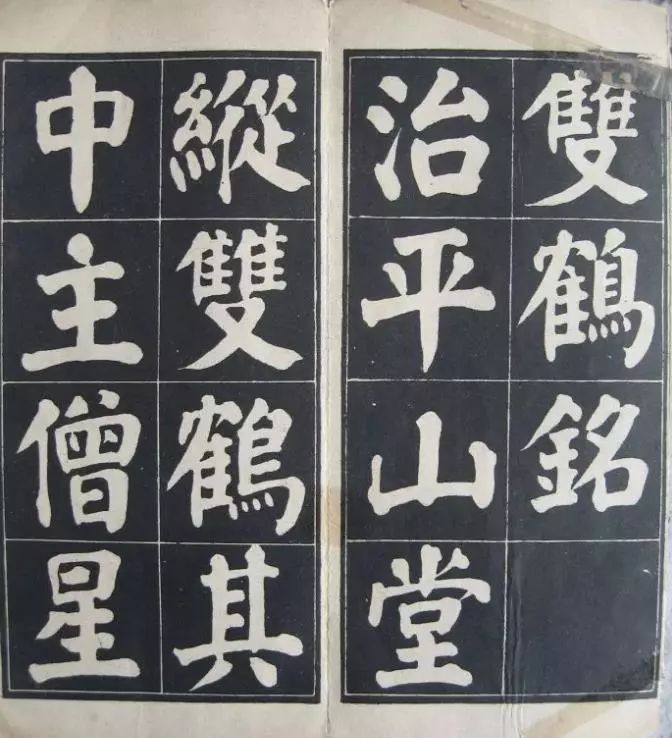 雙鶴銘
治平山堂
縱雙鶴其
中主僧星